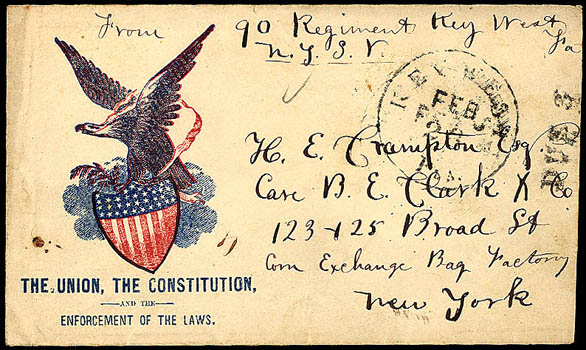 From
90 Regiment Key West
N.Y.S.V. Fa
KEY WEST
FEB
DUE 3
H. E. Crampton Esq.
Care B. E. Clark & Co
123 & 125 Broad St
Corn Exchange Bag Factory
New York
THE UNION, THE CONSTITUTION,
AND THE
ENFORCEMENT OF THE LAWS.